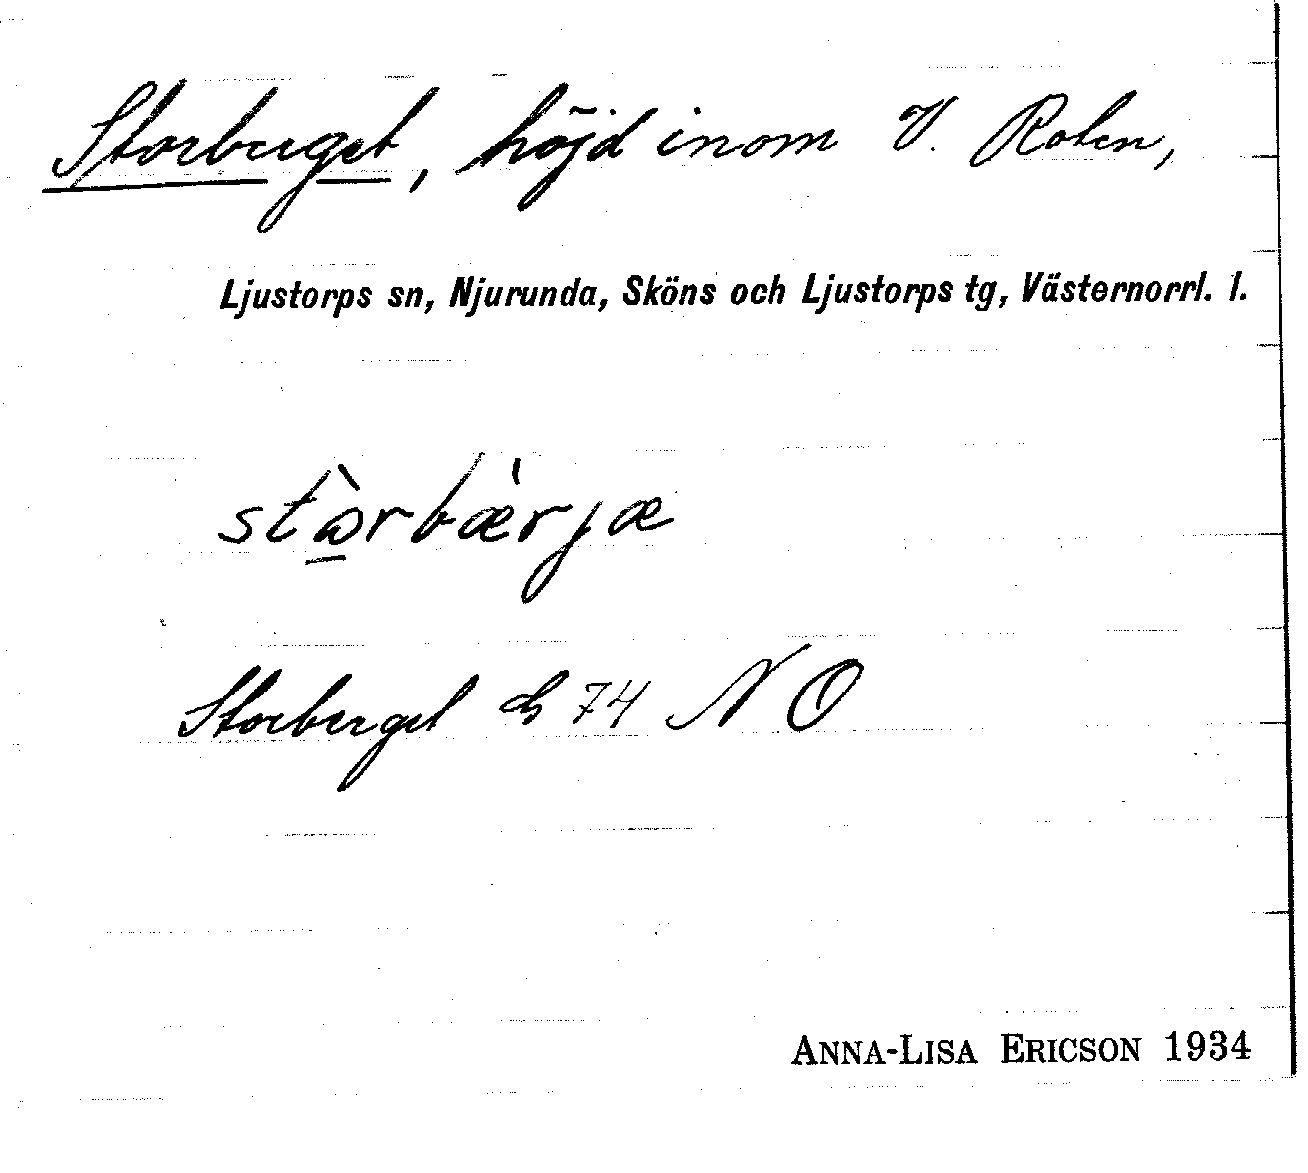 Storberget, höjd inom V. Roten,
Ljustorps sn, Njurunda, Sköns och Ljustorps tg, Västernorrl. l.
storbærjæ
Storberget 74 NO
ANNA-LISA ERICSON 1934